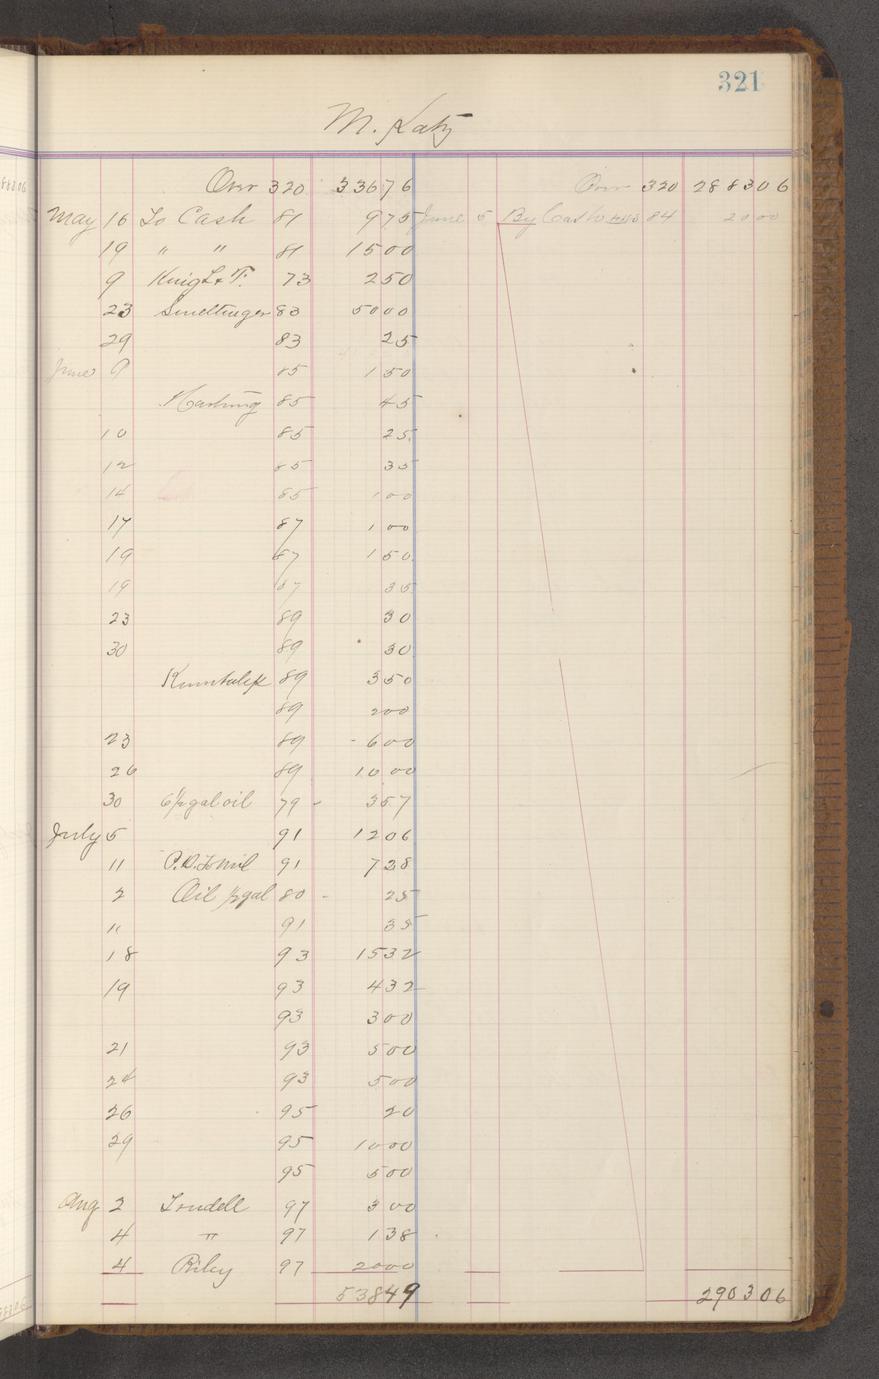 321
M. Katz
Over 320 33676 Over 320 288306
May 16 To Cash 81 975 June 5 By Cash 84 2000
19 " " 81 1500
9 Knight & T. 73 250
23 83 5000
29 83 25
June 9 85 150
85 45
10 85 25
12 85 35
14 85 100
17 87 100
19 87 150
19 87 35
23 89 30
30 89 30
89 350
89 200
23 89 600
26 89 1000
30 6½ gal oil 79 357
July 5 91 1206
11 91 728
2 Oil ½ gal 80 25
11 91 35
18 93 1532
19 93 432
93 300
21 93 500
24 93 500
26 95 20
29 95 1000
95 500
Aug 2 97 300
4 " 97 138
4 Riley 97 2000
53849 290306